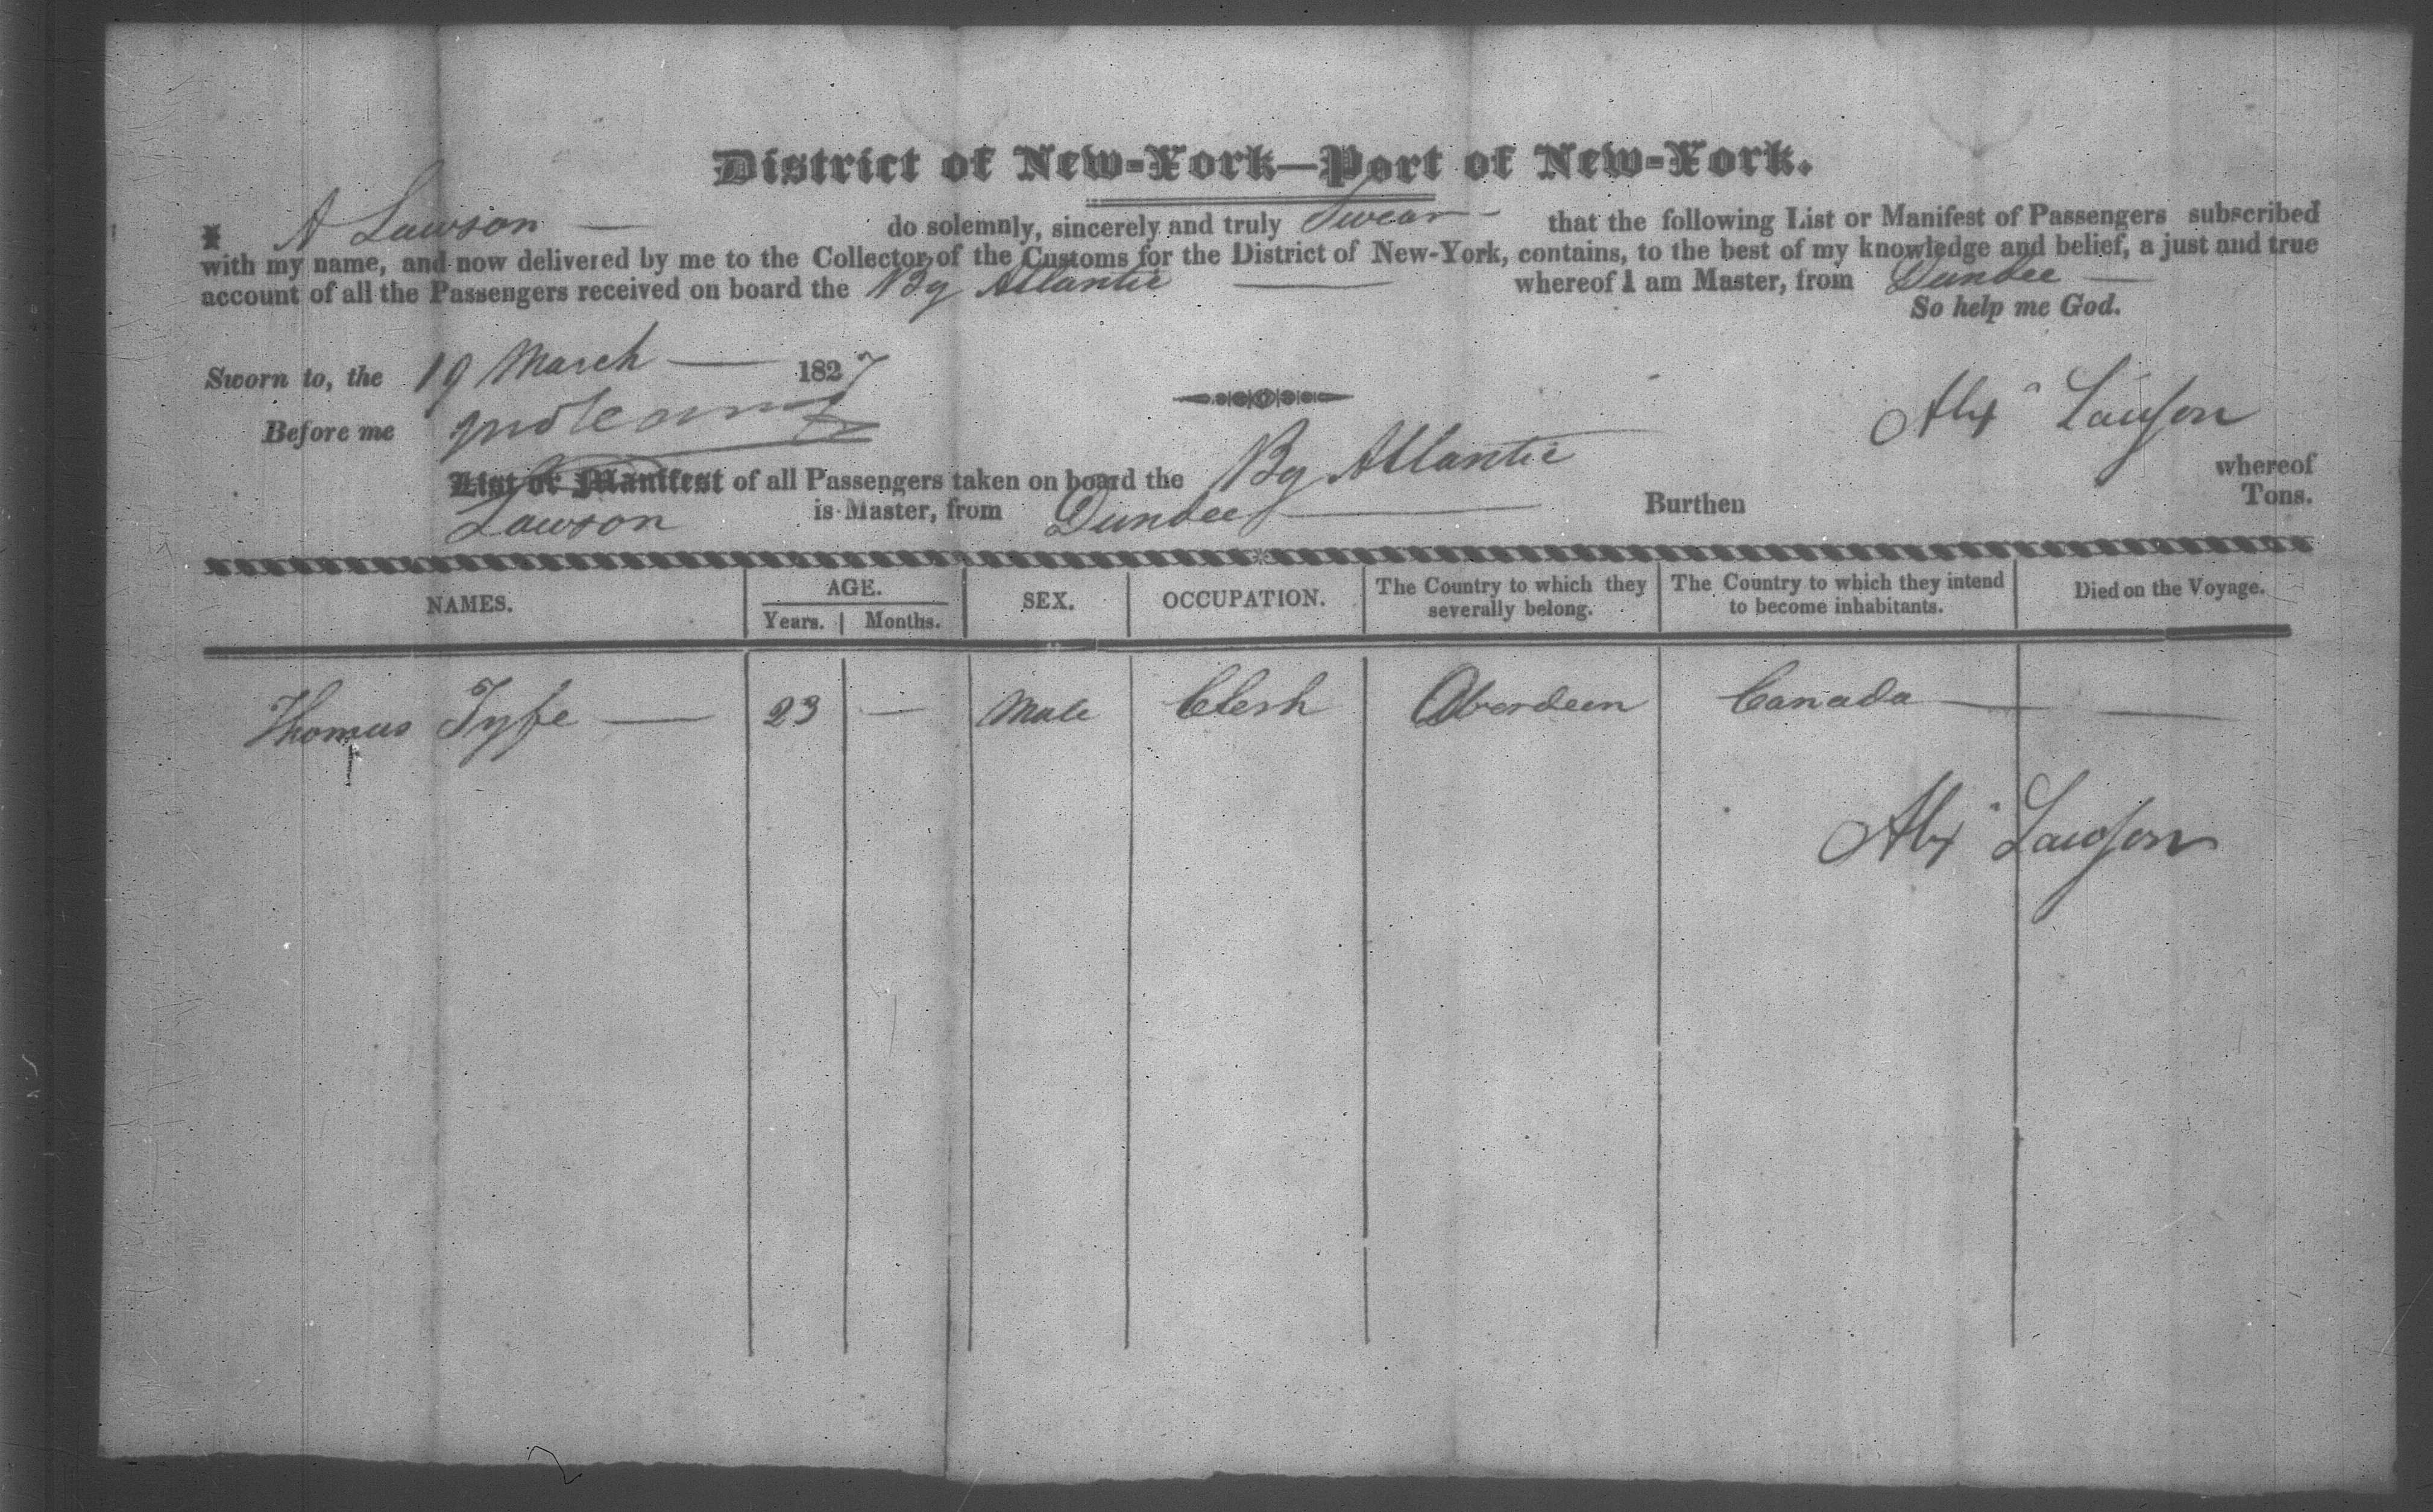 District of New-York—Port of New-York.
I A Lawson — do solemnly, sincerely and truly Swear — that the following List or Manifest of Passengers subscribed
with my name, and now delivered by me to the Collector of the Customs for the District of New-York, contains, to the best of my knowledge and belief, a just and true
account of all the Passengers received on board the Bg Atlantic — whereof I am Master, from Dundee —
So help me God.
Sworn to, the 19 March — 1827
Before me
Alexr Lawson
List or Manifest of all Passengers taken on board the Bg Atlantic whereof
Lawson is Master, from Dundee — Burthen Tons.
NAMES. AGE. SEX. OCCUPATION. The Country to which they severally belong. The Country to which they intend to become inhabitants. Died on the Voyage.
Years. Months.
Thomas Fyfe — 23 — Male Clerk Aberdeen Canada — —
Alexr Lawson